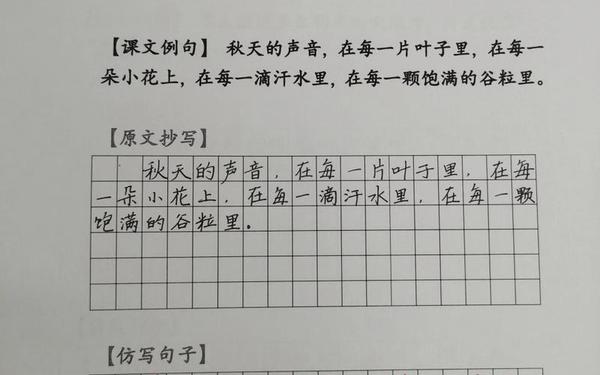 【课文例句】 秋天的声音，在每一片叶子里，在每一
朵小花上，在每一滴汗水里，在每一颗饱满的谷粒里。
【原文抄写】
秋天的声音，在每一片叶子里，在每
一朵小花上，在每一滴汗水里，在每一颗
饱满的谷粒里.
【仿写句子】